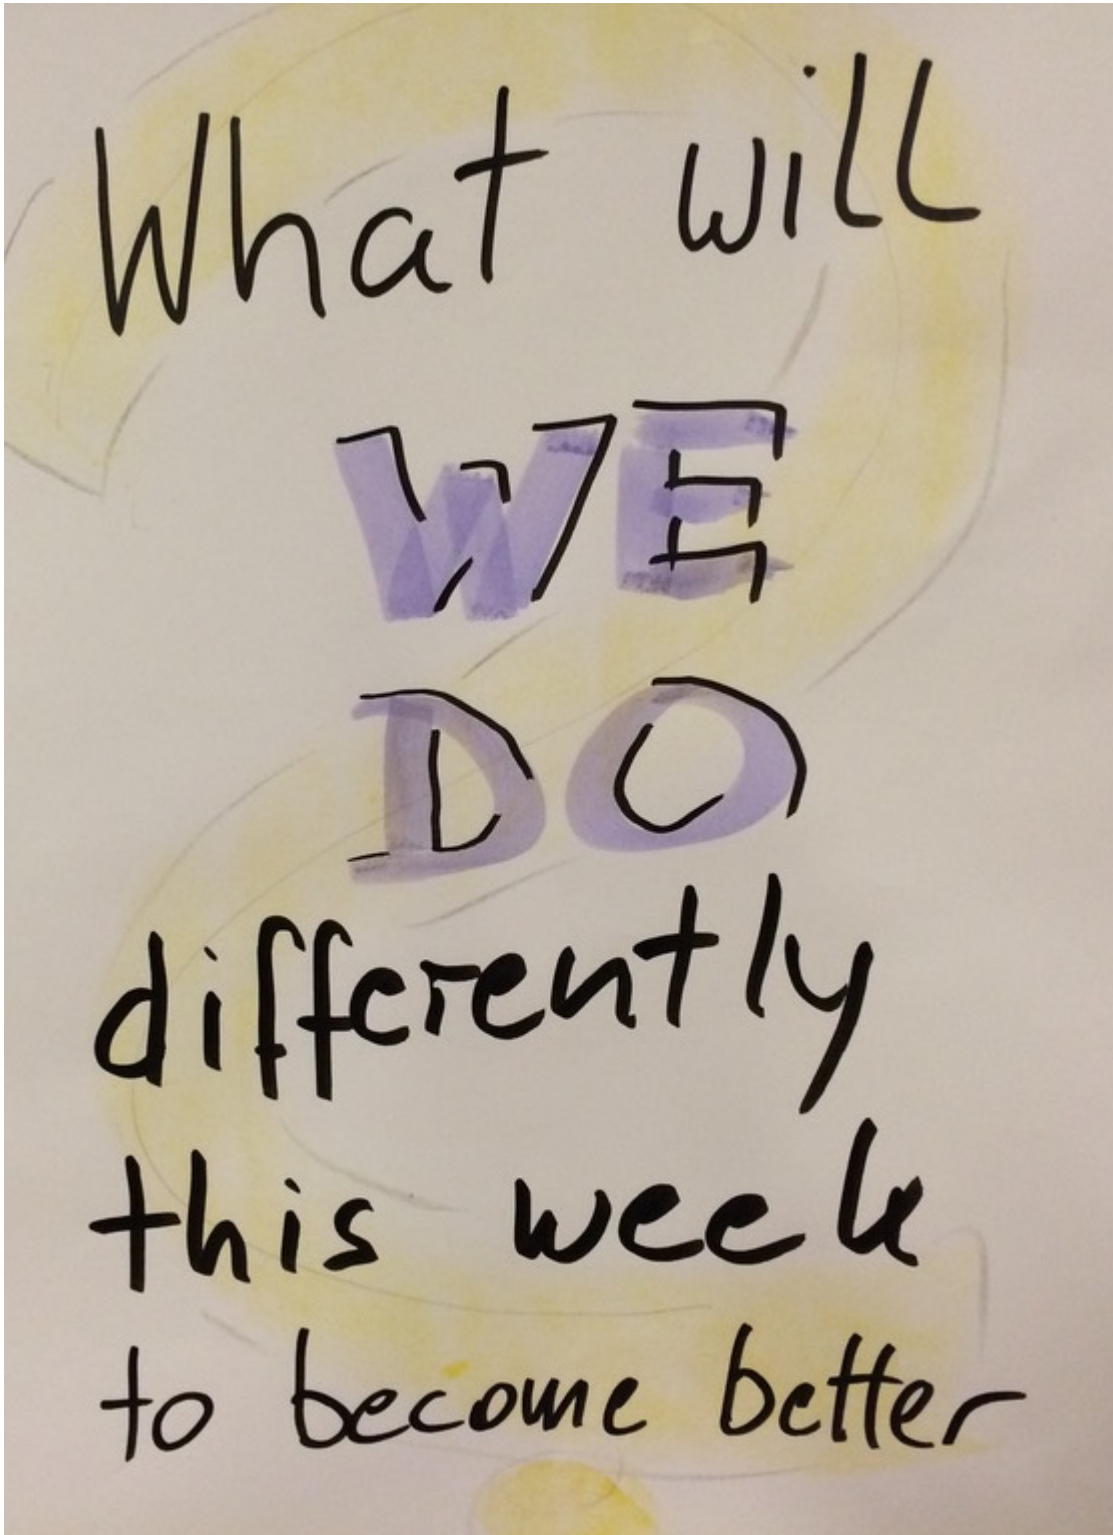 What will
WE
DO
differently
this week
to become better